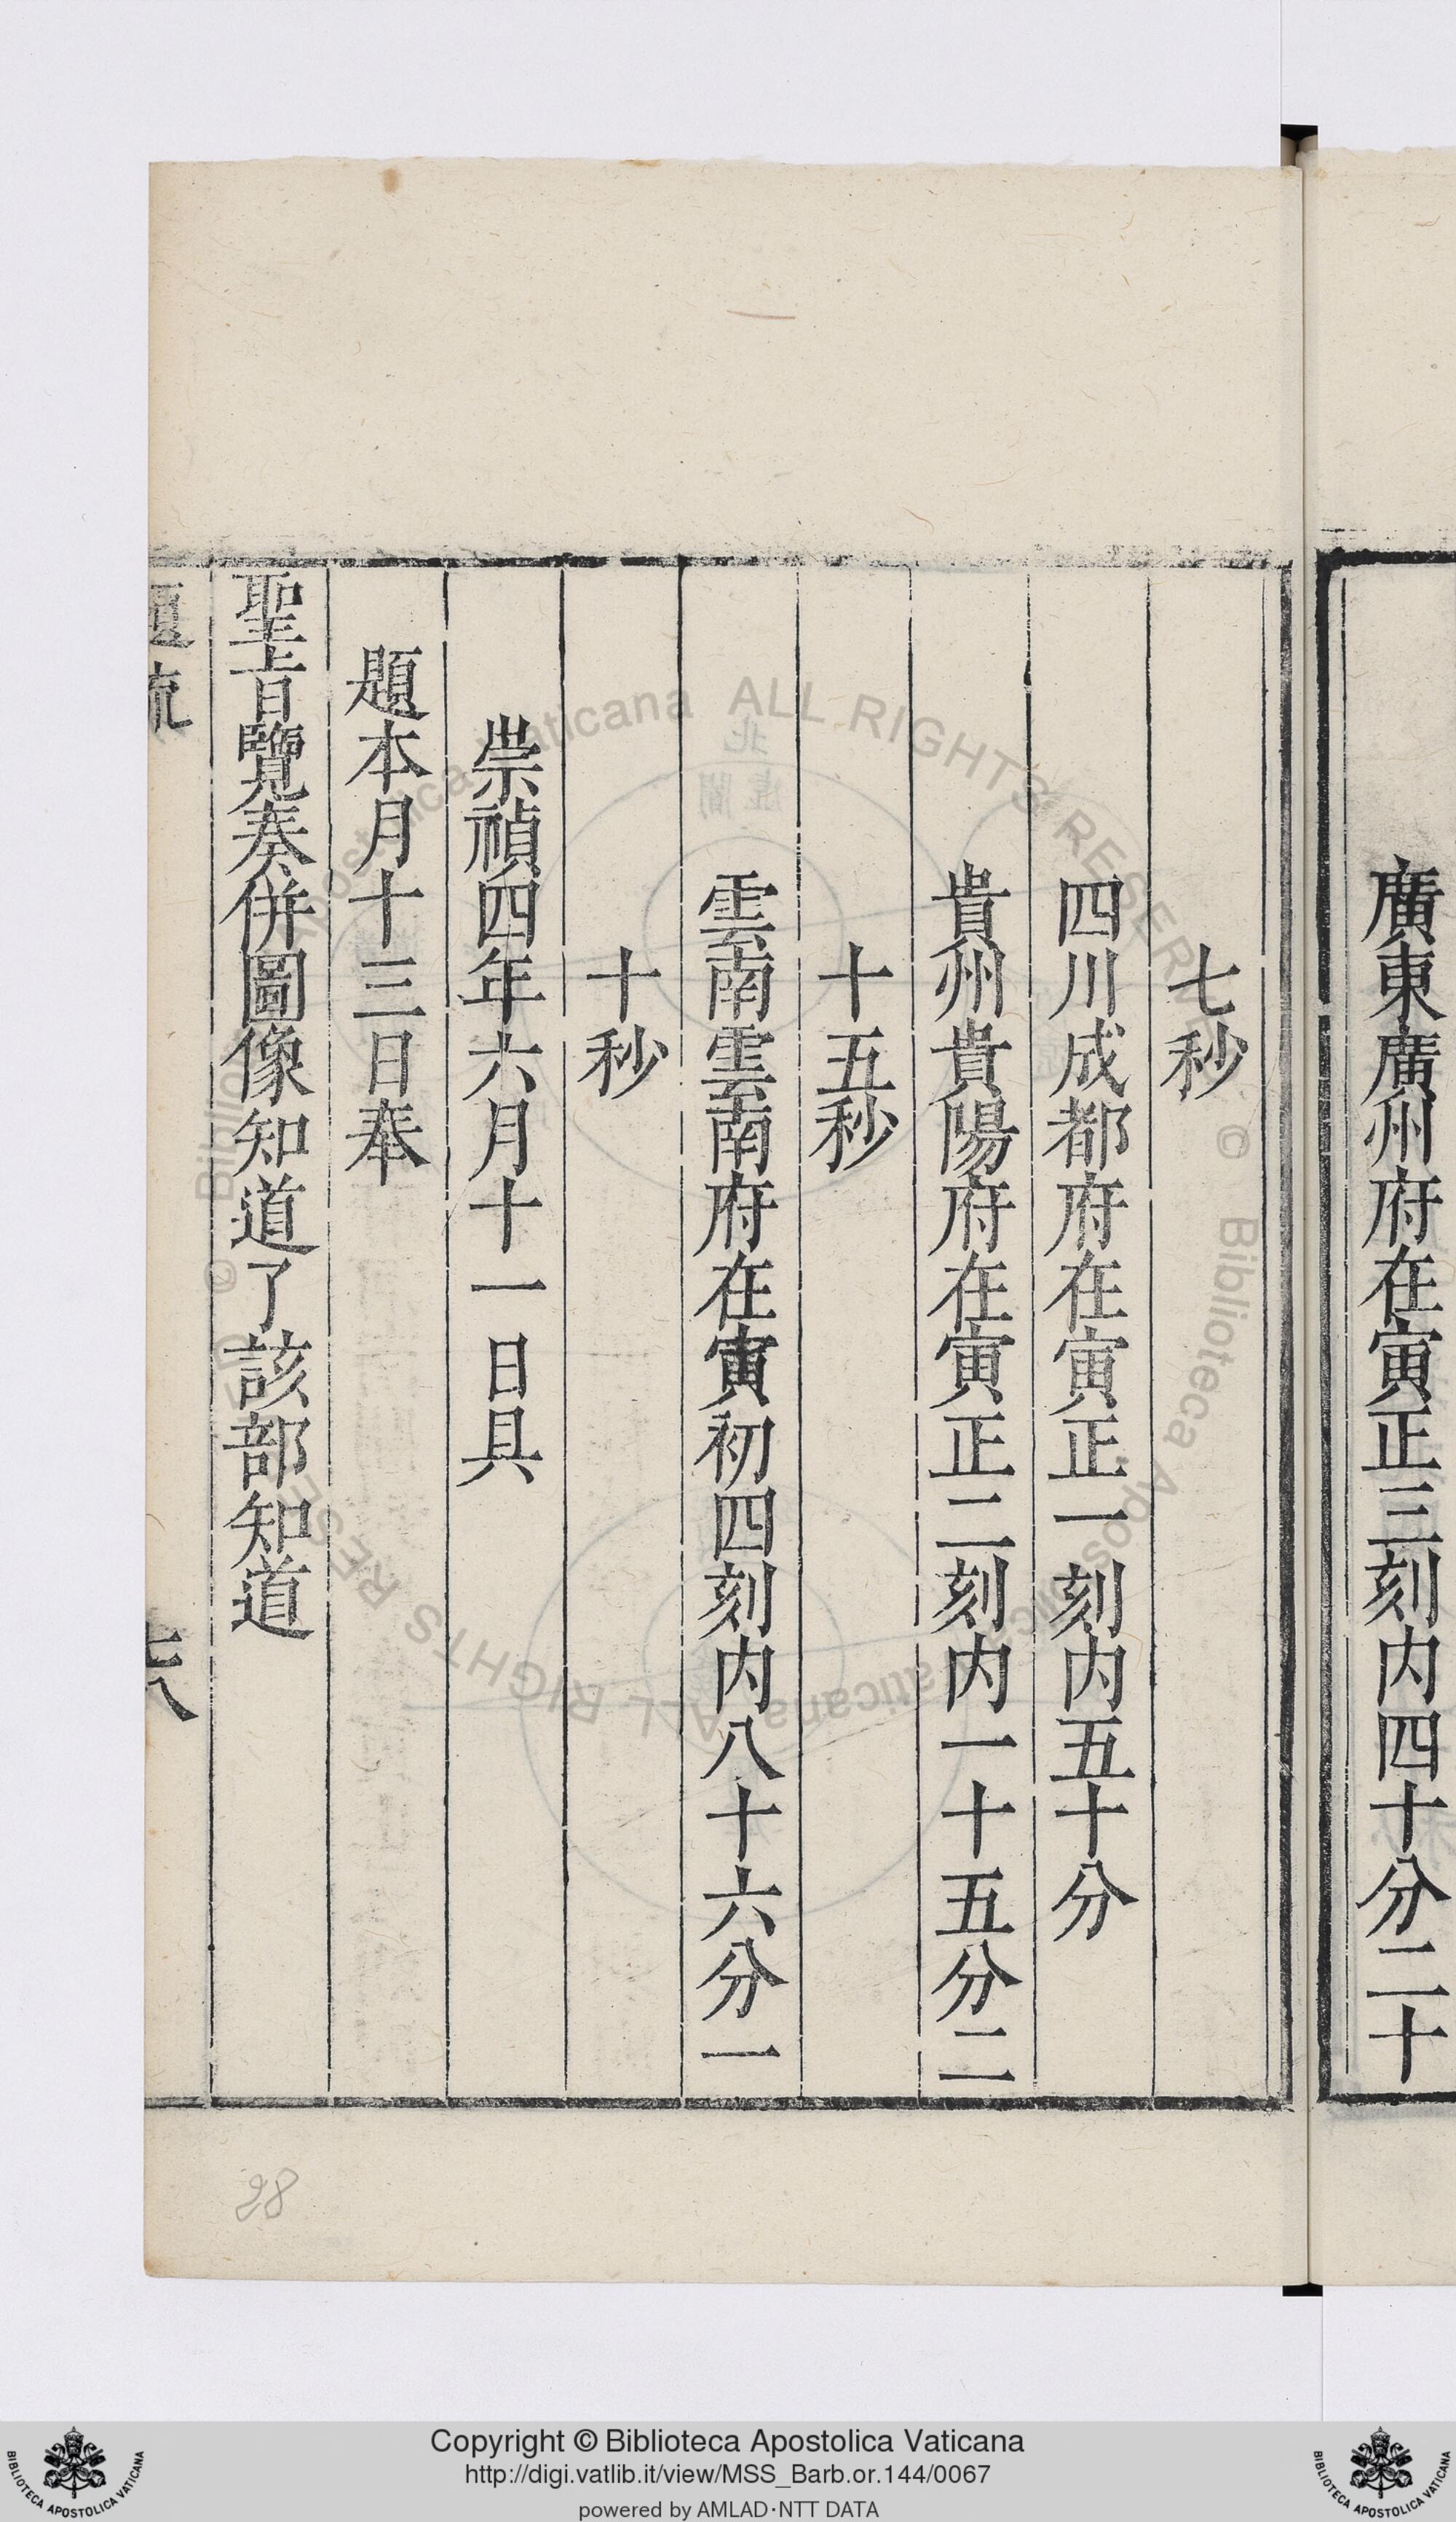 廣東廣州府在寅正三刻内四十分二十
七秒
四川成都府在寅正一刻内五十分
貴州貴陽府在寅正二刻内一十五分二
十五秒
雲南雲南府在寅初四刻内八十六分一
十秒
崇禎四年六月十一日具
題本月十三日奉
聖旨覽奏併圖像知道了該部知道
28
Copyright © Biblioteca Apostolica Vaticana
http://digi.vatlib.it/view/MSS_Barb.or.144/0067
powered by AMLAD·NTT DATA
BIBLIOTECA APOSTOLICA VATICANA
BIBLIOTECA APOSTOLICA VATICANA